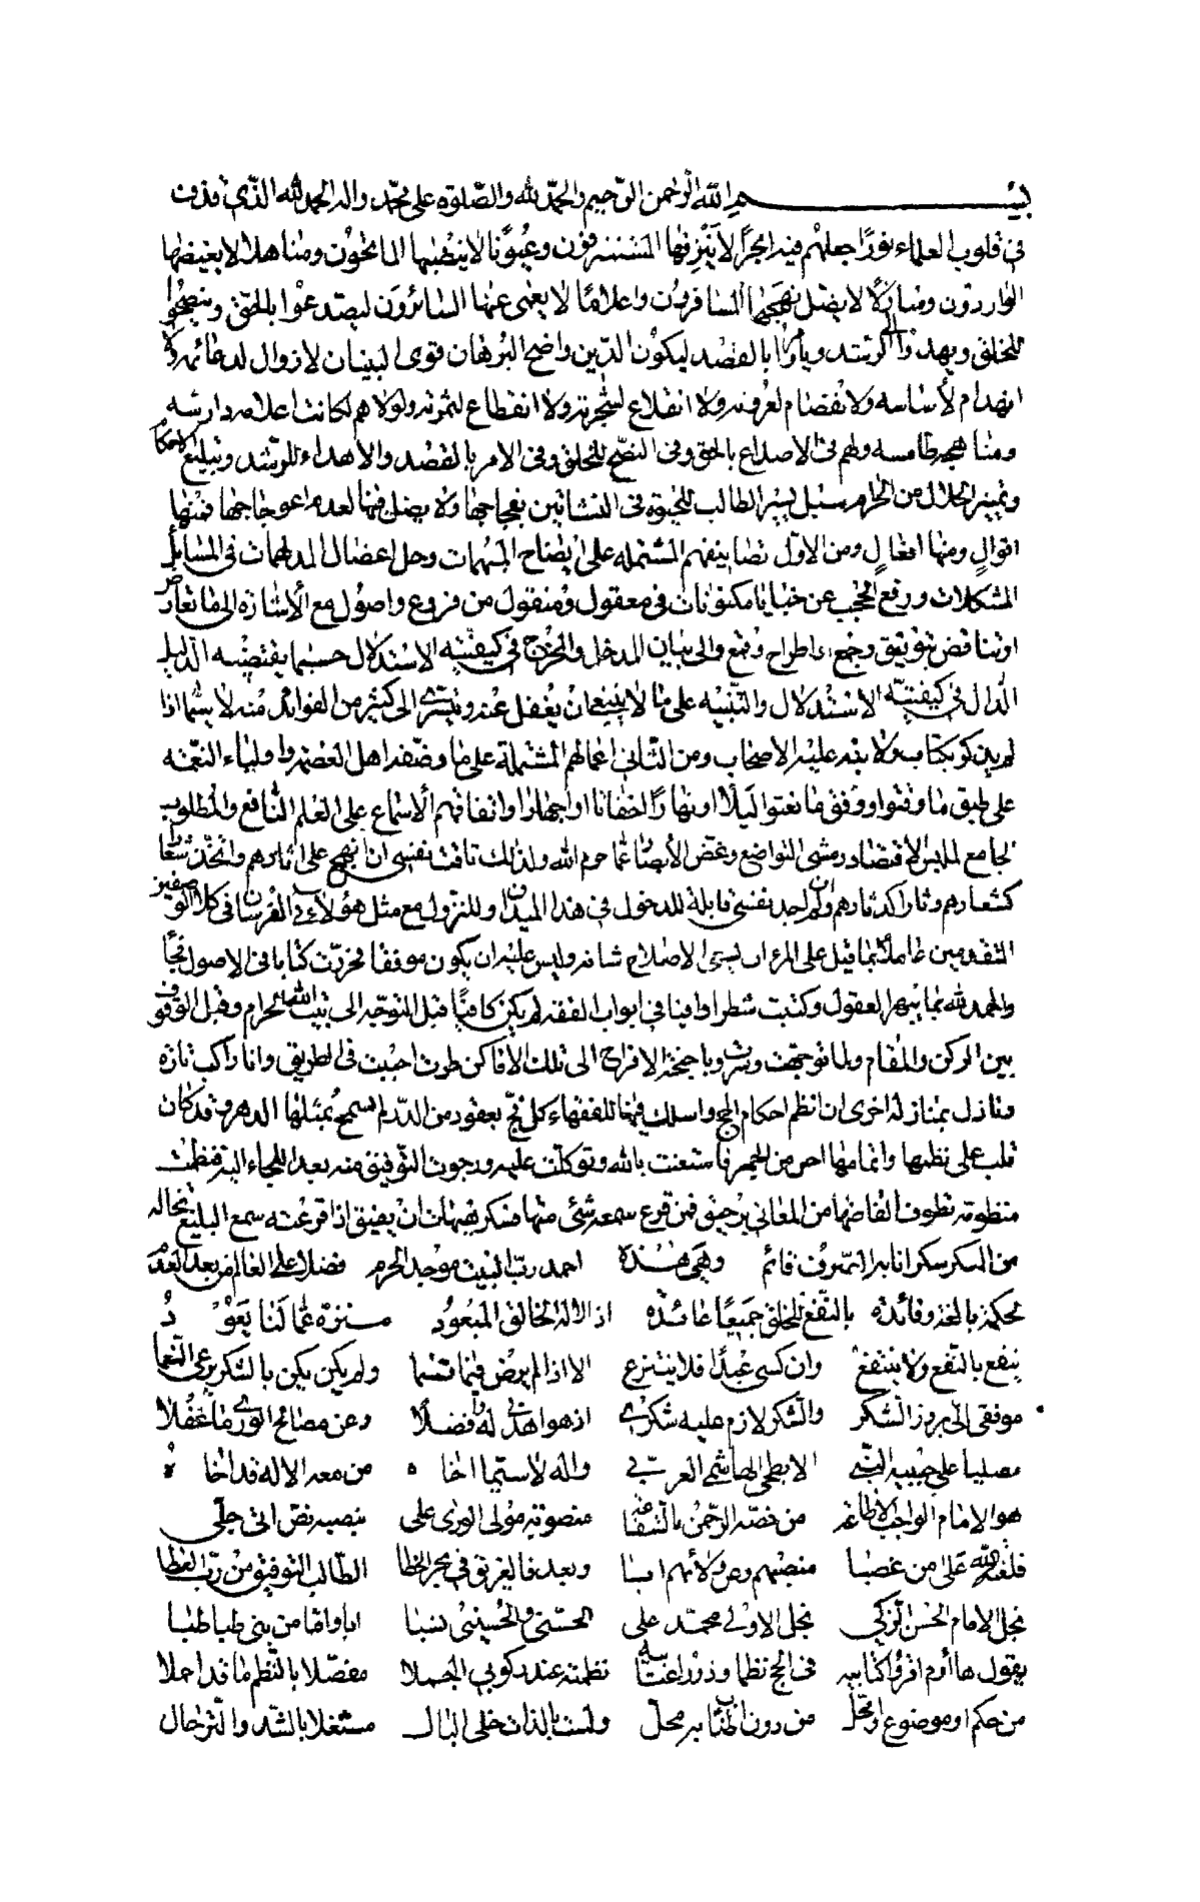 بسم الله الرحمن الرحيم والحمد لله والصلوة على محمد واله الحمد لله الذي قذف
في قلوب العلماء نورًا جعلهم فيه ابحرًا لا ينزفها المستنزفون وعيونًا لا ينضبها الماتحون ومناهلا لا يغيضها
الواردون ومنازلًا لا يضل نهجها المسافرون واعلامًا لا يعمى عنها السائرون ليصدعوا بالحق وينصحوا
للخلق ويهدوا الى الرشد ويأمروا بالقصد ليكون الدين واضح البرهان قوى البنيان لا زوال لدعائمه ولا
انهدام لأساسه ولا انفصام لعروته ولا انقلاع لشجرته ولا انقطاع لثمرته ولولاهم لكانت اعلامه دارسه
ومناهجه طامسه ولهم في الاصداع بالحق وفي النصح للخلق وفي الامر بالقصد والاهداء للرشد وتبليغ الاحكام
وتمييز الحلال من الحرام سبل يسير الطالب للنجوة في النشاتين بفجاجها ولا يضل فيها لعدم اعوجاجها فمنها
اقوالٍ ومنها افعالٍ ومن الاوّل تصانيفهم المشتمله على ايضاح المبهمات وحل اعضال المدلهمات في المسائل
المشكلات ورفع الحجب عن خبايا مكنونات في معقول ومنقول من فروع واصول مع الأشارة الى ما تعارض
او تناقض بتوفيق وجمع او اطراح ودفع والى بيان المدخل والمخرج في كيفيته الاستدلال حسبما يقتضيه الدليل
الدال في كيفيته الاستدلال والتنبيه على ما لا ينبغي ان يغفل عنه وتيسرى الى كثير من الفوائد منه لا سيما اذا
لم يذكر بكتاب ولا ينبه عليه الاصحاب ومن الثاني اعمالهم المشتملة على ما وصفه اهل العصمه واولياء النعمه
على طبق ما وصفوا ووفق ما نعتوا ليلًا او نهارًا اخفاتا او اجهارًا وانفاقهم الاسماع على العلم النافع والمطلوب
الجامع لملبس الاقتصاد ومشى التواضع وغض الأبصار عما حرم الله ولذلك تاقت نفسى ان انهج على اثارهم واتخذ شعارا
كشعارهم ودثارا كدثارهم وان لم اجد نفسى قابلة للدخول في هذا الميدان وللنزول مع مثل هؤلاء في الفرسان في كلا الوصفين
المتقدمين عاملًا بما قيل على المرء ان يسعى لاصلاح شانه وليس عليه ان يكون موفقا فحررت كتابا في الاصول نجًا
والحمد لله بما يبهر العقول وكتبت شطرا وافيا في ابواب الفقه لم يكن كافيًا قبل التوجه الى بيت الله الحرام وقبل الوقوف
بين الركن والمقام ولما توجهت وتشرت وباجنحة الافراح الى تلك الاماكن طرت احببت في الطريق وانا راكب تارة
ونازل بمنازله اخرى ان انظم احكام الحج واسلك فيها للفقهاء كل فج بعقود من الدر لم يسمح بمثلها الدهر وقد كان
قلب على نظمها واتمامها احر من الجمر فاستعنت بالله وتوكلت عليه ورجوت التوفيق منه بعد الالتجاء اليه فنظمت
منظومة تطوف الفاضها من المعاني برحيق فمن قرع سمعه شئى منها فسكر فهيهات ان يفيق اذا قرعته سمع البليغ تخاله
من السكر سكرانا به الترف قائم    وهى هذه    احمد رب البيت موجد الحرم    فضلا على العالم بعد العدم
محكمة بالغة وفائدة    بالنفع للخلق جميعًا عائدة    اذ الاله الخالق المعبود    منزه عما لنا يعود
ينفع بالنفع ولا ينتفع    وان كسى عبدًا فلا ينتزع    الا اذا لم يرض فيما قسما    ولم يكن يكن بالشكر يرعى النعما
موفقى الى بروز الشكر    والشكر لازم عليه شكرى    اذ هو اهل له وفضلا    وعن مصالح الورى ما غفلا
مصليا على حبيبه النبي    الابطحى الهاشمي العربي    واله لا سيما اخاه    من معه الاله قد اخاه
هو الامام الواجب الاطاعه    من خصه الرحمن بالشفاعه    منصوبه مولى الورى على    بنصبه نص اتى جلى
فلعنة الله على من غصبا    منصبهم وعن ولائهم ابا    وبعد فالغريق في بحر الخطا    الطالب التوفيق من رب العطا
نجل الامام الحسن الزكي    نجل الاولى محمد على    الحسنى والحسينى نسبا    ابا واما من بنى طباطبا
يقول هاأوم اقرؤا كتابيه    في الحج نظما وذروا عتابيه    نظمته عند ركوبى الجملا    مفصلا بالنظم ما قد اجملا
من حكم او موضوع او محل    من دون اطناب به محل    ولست بالذات خلى البال    مشتغلا بالشد والترحال